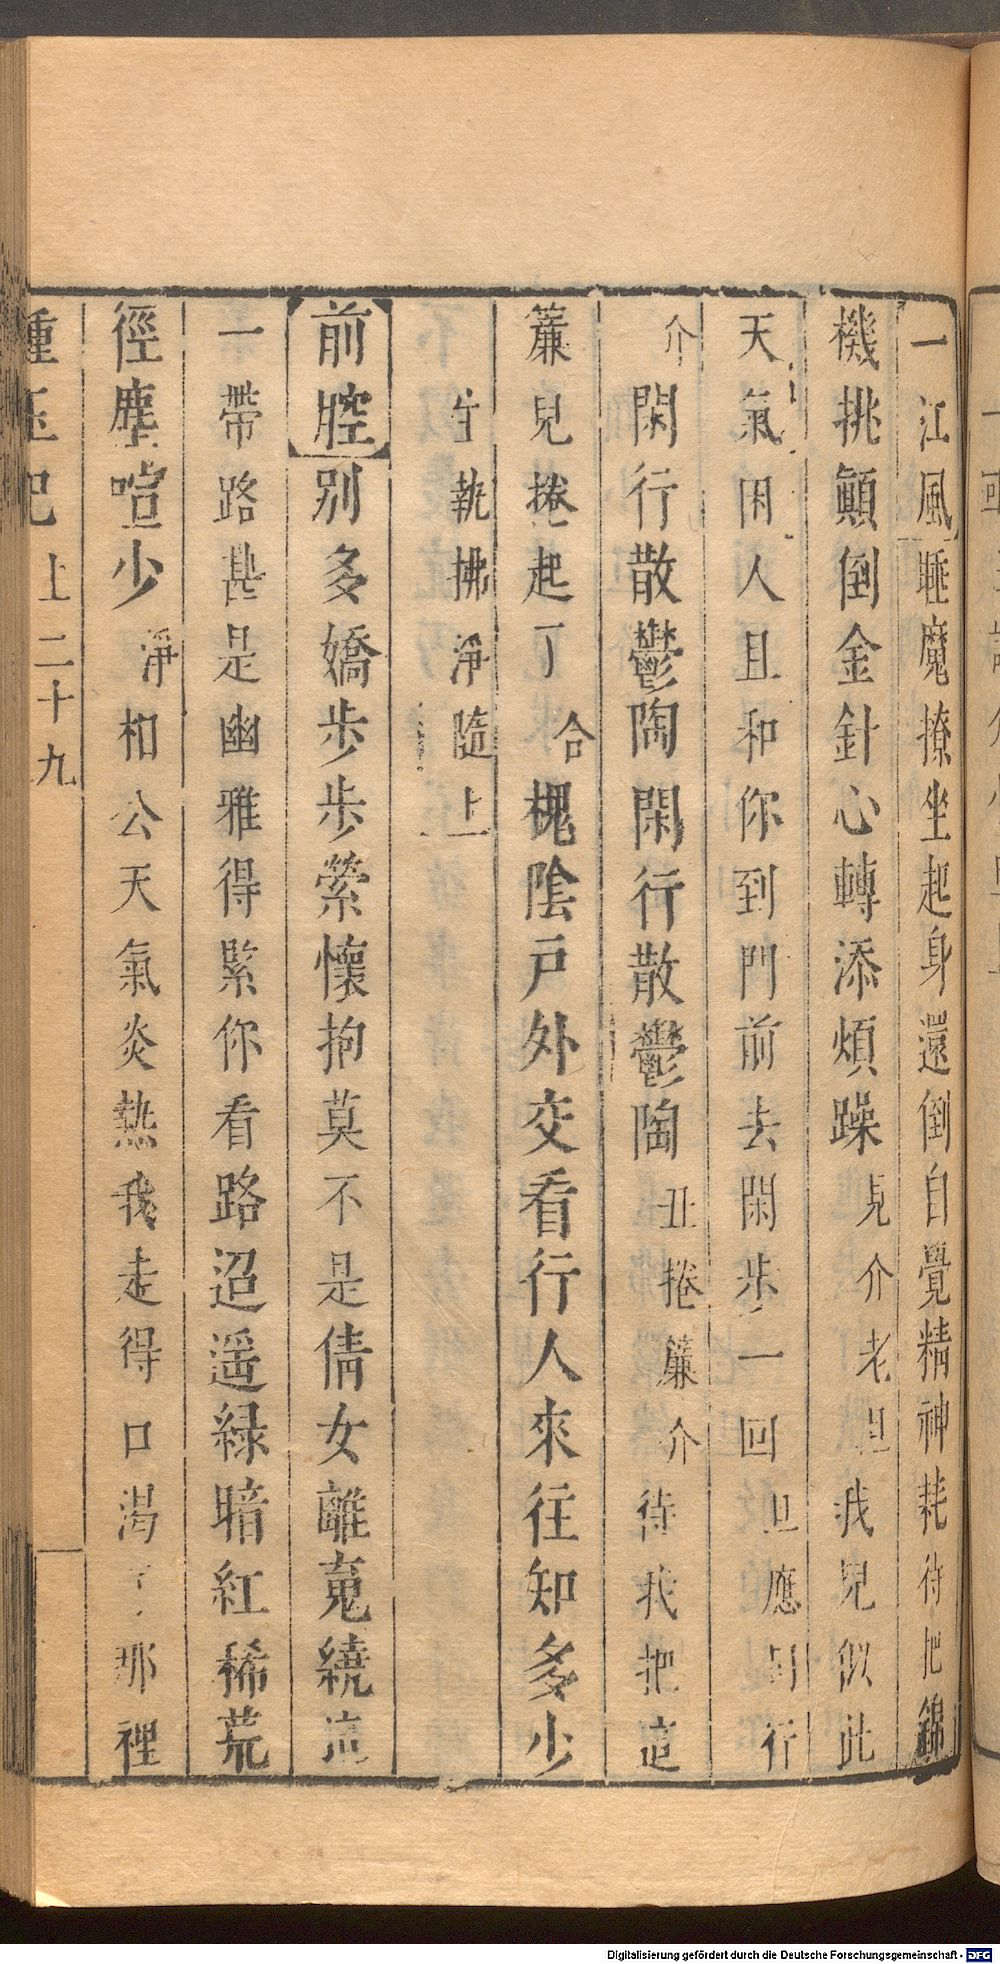 一江風睡魔撩坐起身還倒自覺精神耗待把錦
機挑顛倒金針心轉添煩躁見介老旦我兒似此
天氣困人且和你到門前去閑步一回旦應同行
介閑行散鬱陶閑行散鬱陶丑捲簾介待我把這
簾兒捲起了合槐陰戸外交看行人來往知多少
生執拂淨隨上
前腔別多嬌步步縈懷抱莫不是倩女離䰟繞這
一帶路甚是幽雅得緊你看路迢遥緑暗紅稀荒
徑塵喧少淨相公天氣炎熱我走得口渴了那裡
種玉記上二十九
Digitalisierung gefördert durch die Deutsche Forschungsgemeinschaft - DFG